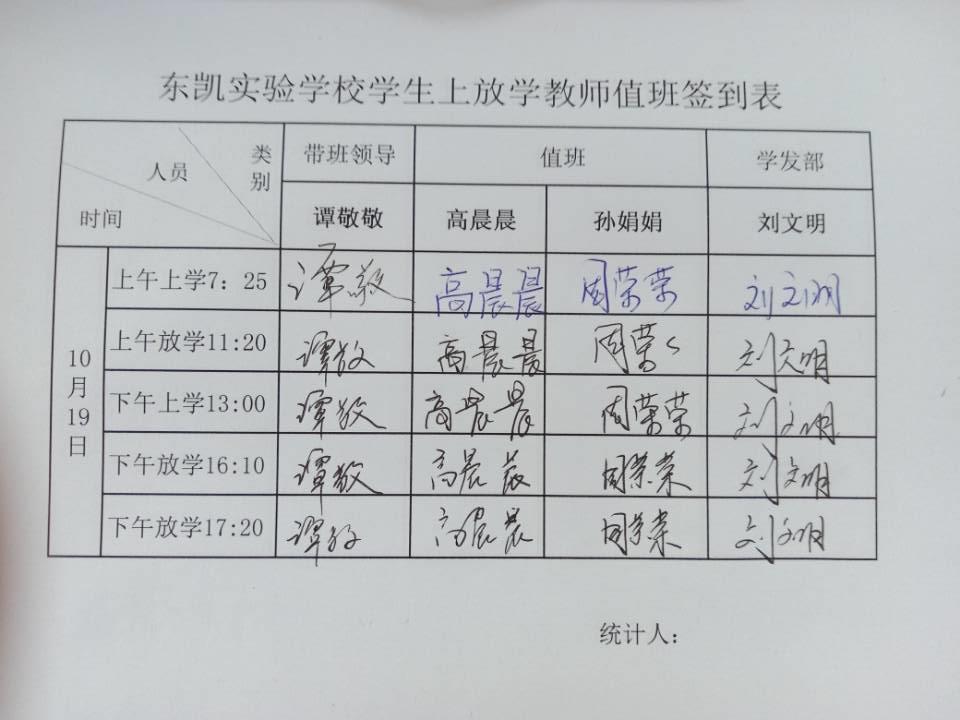 东凯实验学校学生上放学教师值班签到表
人员 类别 时间 带班领导 值班 学发部
谭敬敬 高晨晨 孙娟娟 刘文明
10月19日
上午上学7：25 谭敬 高晨晨 周荣荣 刘文明
上午放学11:20 谭敬 高晨晨 周荣く 刘文明
下午上学13:00 谭敬 高晨晨 周荣荣 刘文明
下午放学16:10 谭敬 高晨晨 周荣荣 刘文明
下午放学17:20 谭敬 高晨晨 周荣荣 刘文明
统计人：